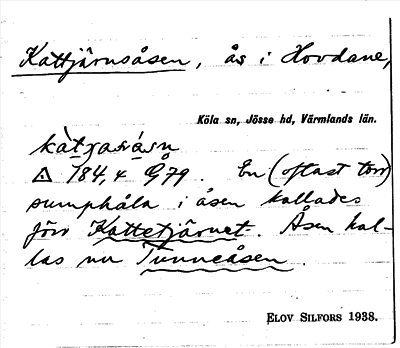 Kattjärnsåsen, ås i Hovdane,
Köla sn, Jösse hd, Värmlands län.
kàtjasåsn
△ 184,4 Gå79. En (oftast torr)
sumphåla i åsen kallades
förr Kattetjärnet. Åsen kal-
las nu Tunneåsen.
ELOV SILFORS 1938.